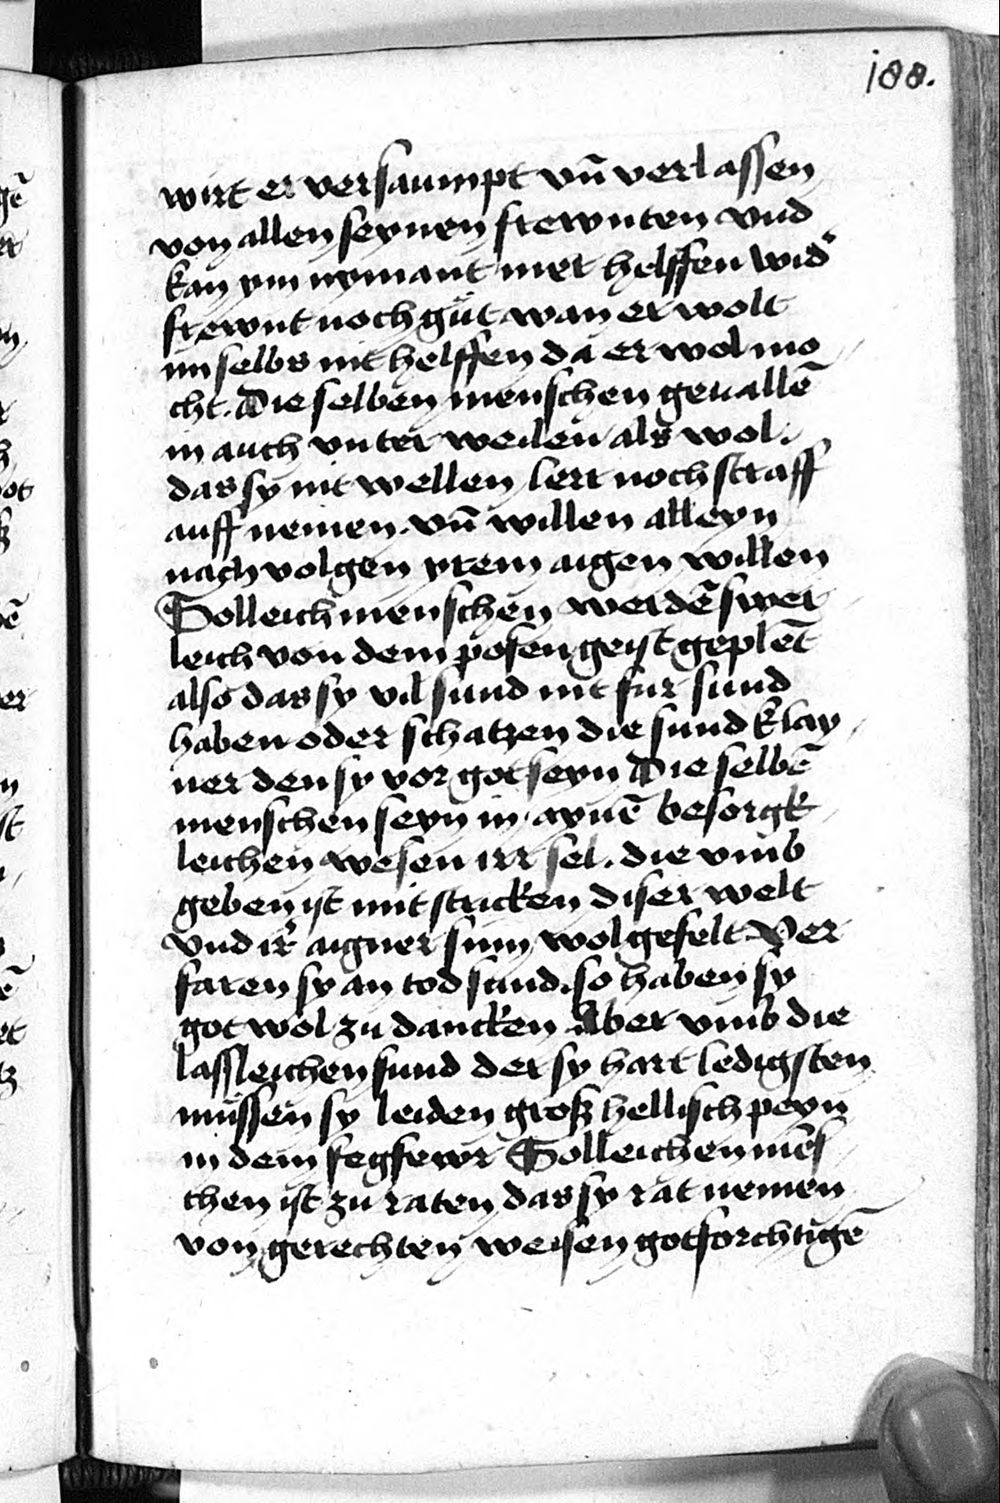 188.
wirt er versaumpt vn̄ verlassen
von allen seynen frewnten vnd
kan ym nymant mer helffen wid'
frewnt noch gůt wan er wolt
im selbs nit helffen da er wol mo
cht. Die selben menschen geuallē
in auch vnter weilen als wol.
das sy nit wellen lerr noch straff
auff nemen. vn̄ willen alleyn
nach volgen yrem aigen willen
Solleich menschen werdē swer
leich von dem posen geist geplēt
also das sy vil sund nit fur sund
haben oder schatzen die sund klay
ner den sy vor got seyn Die selbē
menschen seyn in aynē besorgk
leichen wesen irr sel. die vmb
geben ist mit stricken diser welt
vnd ir aigner sinn wol gefelt Ver
faren sy an tod sund. so haben sy
got wol zu dancken Aber vmb die
lassleichen sund der sy hart ledigsten
müssen sy leiden groß hellisch peyn
in dem fegfewr Solleichen mēs
chen ist zu raten das sy rat nemen
von gerechten weisen gotforchtigē